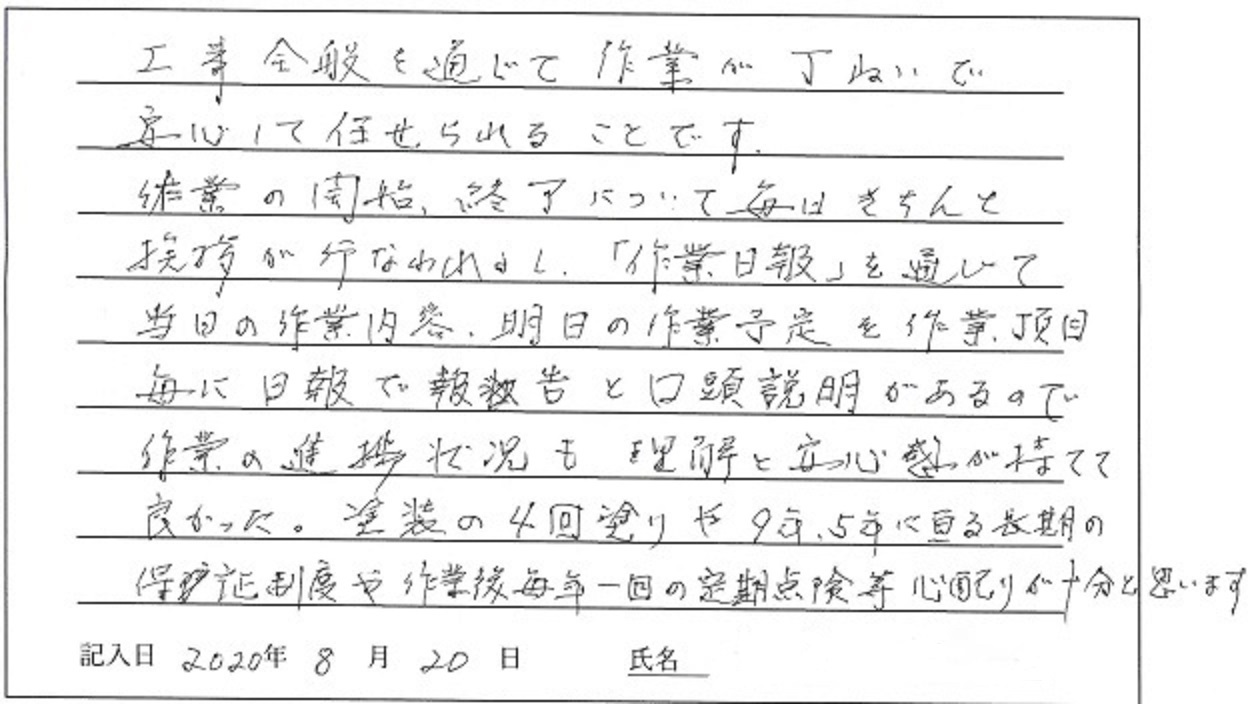 工事全般を通じて作業が丁ねいで
安心して任せられることです。
作業の開始、終了について毎日きちんと
挨拶が行なわれますし、「作業日報」を通じて
当日の作業内容、明日の作業予定を作業項目
毎に日報で報告と口頭説明があるので
作業の進捗状況も理解と安心感が持てて
良かった。塗装の4回塗りや9年、5年に亘る長期の
保証制度や作業後毎年一回の定期点険等心配りが十分と思います
記入日 2020年 8月 20日 氏名